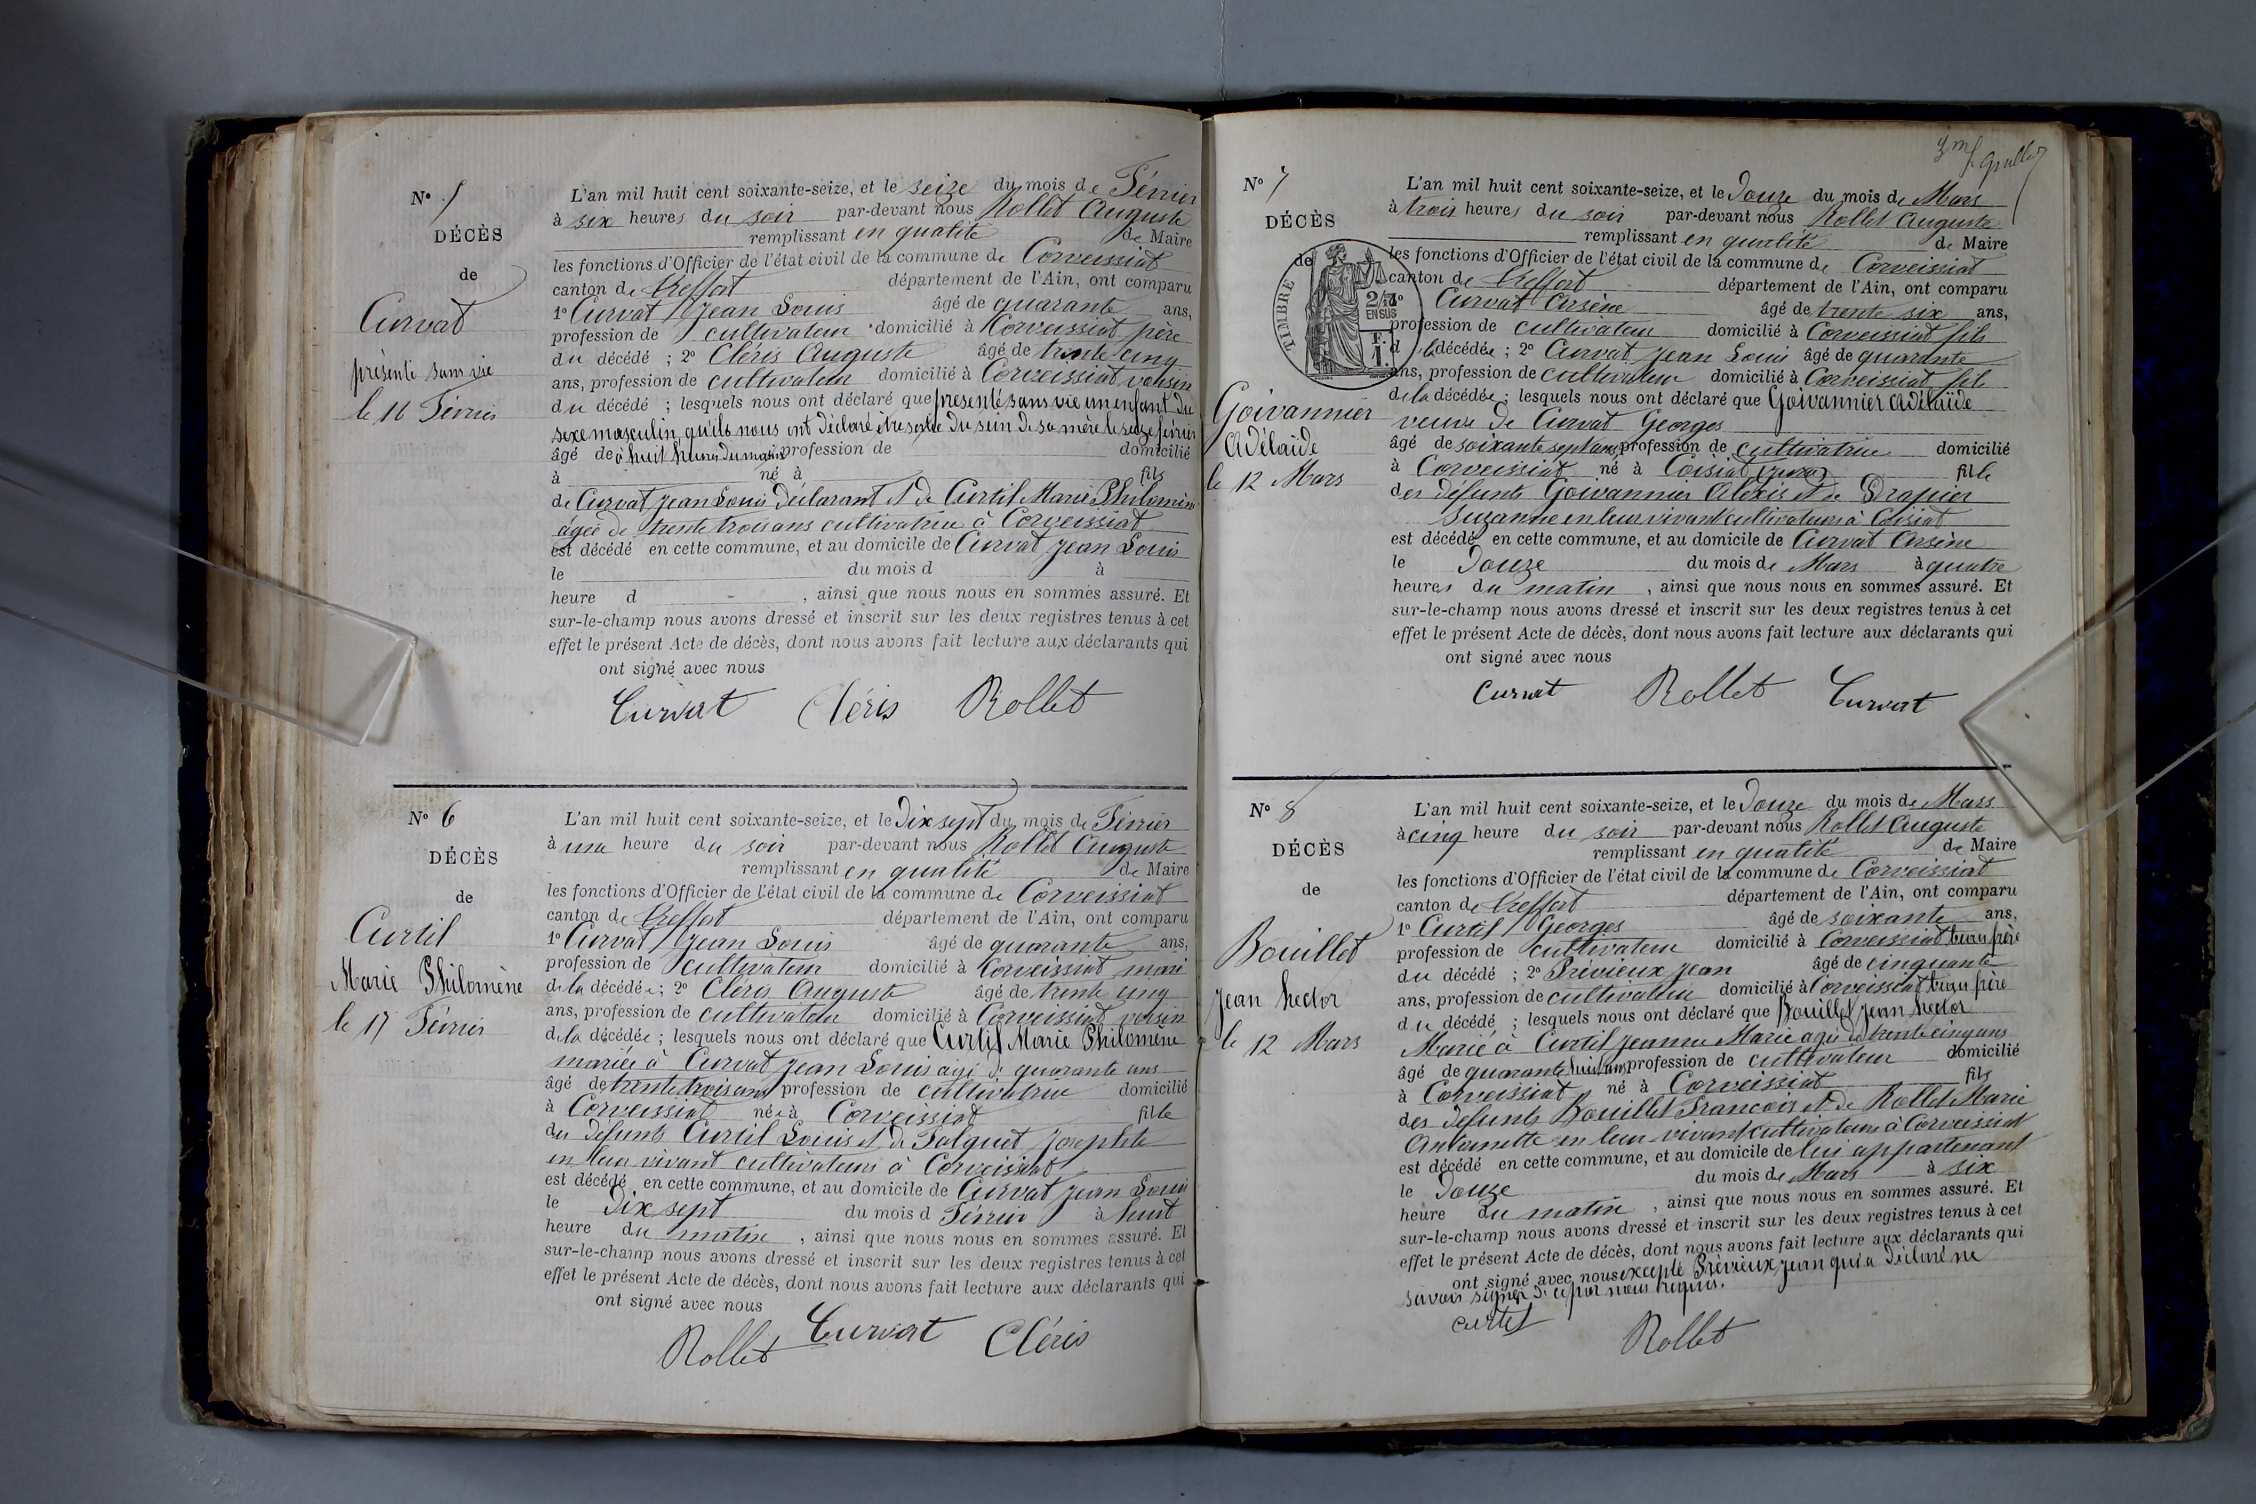 N° 5
DÉCÈS
de
Curvat
présenté sans vie
le 16 Février
L'an mil huit cent soixante-seize, et le seize du mois de Février
à six heures du soir par-devant nous Rollet Auguste
remplissant en qualité de Maire
les fonctions d'Officier de l'état civil de la commune de Corveissiat
canton de Treffort département de l'Ain, ont comparu
1° Curvat Jean Louis âgé de quarante ans,
profession de cultivateur domicilié à Corveissiat père
du décédé ; 2° Cléris Auguste âgé de trente cinq
ans, profession de cultivateur domicilié à Corveissiat voisin
du décédé ; lesquels nous ont déclaré que présenté sans vie un enfant du
sexe masculin, qu'ils nous ont déclaré être sorti du sein de sa mère le seize février
âgé de à huit heures du matin profession de domicilié
à né à fils
de Curvat Jean Louis déclarant et de Curtil Marie Philomène
âgée de trente trois ans cultivatrice à Corveissiat
est décédé en cette commune, et au domicile de Curvat Jean Louis
le du mois d à
heure d , ainsi que nous nous en sommes assuré. Et
sur-le-champ nous avons dressé et inscrit sur les deux registres tenus à cet
effet le présent Acte de décès, dont nous avons fait lecture aux déclarants qui
ont signé avec nous
Curvat Cléris Rollet
N° 6
DÉCÈS
de
Curtil
Marie Philomène
le 17 Février
L'an mil huit cent soixante-seize, et le Dix sept du mois de Février
à une heure du soir par-devant nous Rollet Auguste
remplissant en qualité de Maire
les fonctions d'Officier de l'état civil de la commune de Corveissiat
canton de Treffort département de l'Ain, ont comparu
1° Curvat Jean Louis âgé de quarante ans,
profession de cultivateur domicilié à Corveissiat mari
de la décédée ; 2° Cléris Auguste âgé de trente cinq
ans, profession de cultivateur domicilié à Corveissiat voisin
de la décédée ; lesquels nous ont déclaré que Curtil Marie Philomène
mariée à Curvat Jean Louis agé de quarante ans
âgé de trente trois ans profession de cultivatrice domicilié
à Corveissiat née à Corveissiat fille
des défunts Curtil Louis et de Falquet Josephte
en leur vivant cultivateurs à Corveissiat
est décédé en cette commune, et au domicile de Curvat Jean Louis
le Dix sept du mois d Février à huit
heure du matin , ainsi que nous nous en sommes assuré. Et
sur-le-champ nous avons dressé et inscrit sur les deux registres tenus à cet
effet le présent Acte de décès, dont nous avons fait lecture aux déclarants qui
ont signé avec nous
Rollet Curvat Cléris
N° 7
DÉCÈS
de
TIMBRE
2/10
EN SUS
1 F.
Goivannier
Adélaïde
le 12 Mars
L'an mil huit cent soixante-seize, et le Douze du mois de Mars
à trois heures du soir par-devant nous Rollet Auguste
remplissant en qualité de Maire
les fonctions d'Officier de l'état civil de la commune de Corveissiat
canton de Treffort département de l'Ain, ont comparu
1° Curvat Arsène âgé de trente six ans,
profession de cultivateur domicilié à Corveissiat fils
d la décédée ; 2° Curvat Jean Louis âgé de quarante
ans, profession de cultivateur domicilié à Corveissiat fils
de la décédée ; lesquels nous ont déclaré que Goivannier Adélaïde
veuve de Curvat Georges
âgé de soixante sept ans profession de cultivatrice domicilié
à Corveissiat né à Coisiat (Jura) fille
des défunts Goivannier Alexis et de Drapier
Suzanne en leur vivant cultivateurs à Coisiat
est décédé en cette commune, et au domicile de Curvat Arsène
le Douze du mois de Mars à quatre
heures du matin , ainsi que nous nous en sommes assuré. Et
sur-le-champ nous avons dressé et inscrit sur les deux registres tenus à cet
effet le présent Acte de décès, dont nous avons fait lecture aux déclarants qui
ont signé avec nous
Curvat Rollet Curvat
N° 8
DÉCÈS
de
Bouillet
Jean hector
le 12 Mars
L'an mil huit cent soixante-seize, et le Douze du mois de Mars
à cinq heure du soir par-devant nous Rollet Auguste
remplissant en qualité de Maire
les fonctions d'Officier de l'état civil de la commune de Corveissiat
canton de Treffort département de l'Ain, ont comparu
1° Curtil Georges âgé de soixante ans,
profession de cultivateur domicilié à Corveissiat beau père
du décédé ; 2° Privieux Jean âgé de cinquante
ans, profession de cultivateur domicilié à Corveissiat beau frère
du décédé ; lesquels nous ont déclaré que Bouillet Jean hector
Marié à Curtil Jeanne Marie agée de trente cinq ans
âgé de quarante huit ans profession de cultivateur domicilié
à Corveissiat né à Corveissiat fils
des défunts Bouillet François et de Rollet Marie
Antoinette en leur vivant cultivateurs à Corveissiat
est décédé en cette commune, et au domicile de lui appartenant
le Douze du mois de Mars à six
heure du matin , ainsi que nous nous en sommes assuré. Et
sur-le-champ nous avons dressé et inscrit sur les deux registres tenus à cet
effet le présent Acte de décès, dont nous avons fait lecture aux déclarants qui
ont signé avec nous excepté Privieux Jean qui a déclaré ne
savoir signer de ce par nous requis.
Curtil Rollet